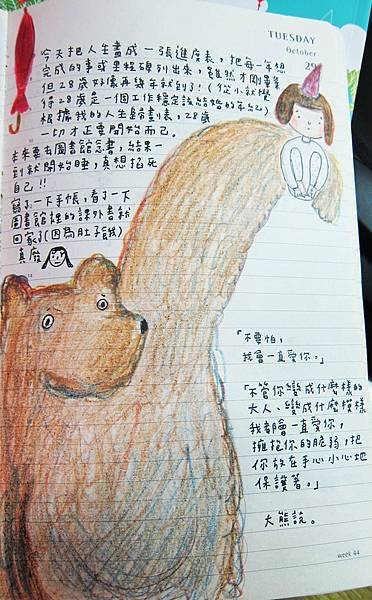 TUESDAY
October
29
今天把人生畫成一張進度表，把每一年想
完成的事或里程碑列出來，雖然才剛畢業
但28歲好像再幾年就到了！(從小就覺
得28歲是一個工作穩定該結婚的年紀)
根據我的人生歸劃表，28歲
一切才正要開始而已。
本來要去圖書館念書，結果一
到就開始睡，真想掐死
自己!!
寫了一下手帳，看了一下
圖書館裡的課外書就
回家了(因為肚子餓)
真廢
「不要怕，
我會一直愛你。」
「不管你變成什麼樣的
大人、變成什麼模樣
我都會一直愛你，
擁抱你的脆弱，把
你放在手心小心地
保護著。」
大熊說。
week 44